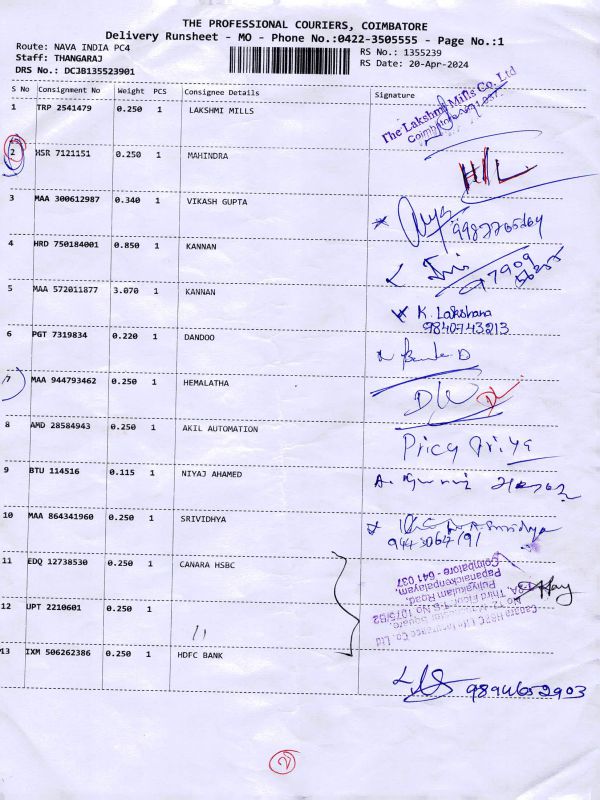 THE PROFESSIONAL COURIERS, COIMBATORE
Delivery Runsheet - MO - Phone No.:0422-3505555 - Page No.:1
Route: NAVA INDIA PC4
RS No.: 1355239
Staff: THANGARAJ
RS Date: 20-Apr-2024
DRS No.: DCJB135523901
S No Consignment No Weight PCS Consignee Details Signature
1 TRP 2541479 0.250 1 LAKSHMI MILLS
The Lakshmi Mills Co. Ltd
Coimbatore
2 HSR 7121151 0.250 1 MAHINDRA
3 MAA 300612987 0.340 1 VIKASH GUPTA
4 HRD 750184001 0.850 1 KANNAN
5 MAA 572011877 3.070 1 KANNAN
K. Lakshana
9840743213
6 PGT 7319834 0.220 1 DANDOO
7 MAA 944793462 0.250 1 HEMALATHA
8 AMD 28584943 0.250 1 AKIL AUTOMATION
Priya
9 BTU 114516 0.115 1 NIYAJ AHAMED
10 MAA 864341960 0.250 1 SRIVIDHYA
9443064191
11 EDQ 12738530 0.250 1 CANARA HSBC
Canara HSBC Life Insurance Co. Ltd
Third Floor, T.S No 1075/92
Puliyakulam Road,
Papanaickenpalayam
Coimbatore - 641 037
12 UPT 2210601 0.250 1 11
13 IXM 506262386 0.250 1 HDFC BANK
9894652903